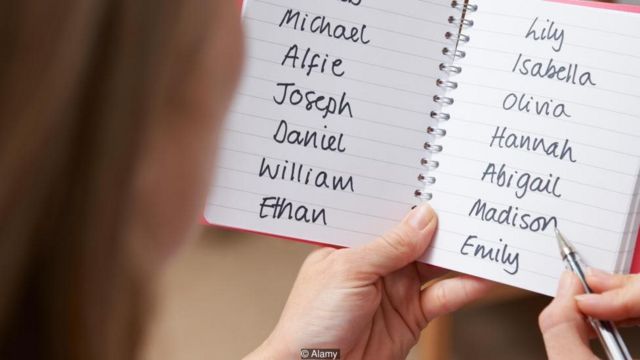 Michael
Alfie
Joseph
Daniel
William
Ethan
Lily
Isabella
Olivia
Hannah
Abigail
Madison
Emily
© Alamy